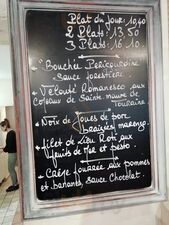 Plat du jour : 10,40
2 Plats : 13,50
3 Plats : 16,10
Bouchée Périgourdine
sauce forestière
Velouté Romanesco aux
Copeaux de Sainte maure de
Touraine
Noix de Joues de porc
braisées marengo
filet de Lieu Roti aux
fruits de Mer et pesto
Crêpe fourrée aux pommes
et bananes, sauce chocolat.